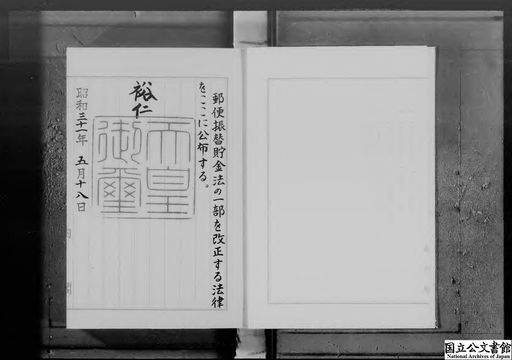 郵便振替貯金法の一部を改正する法律
をここに公布する。
裕仁
天皇
御璽
昭和三十一年 五月十八日
内閣
国立公文書館
National Archives of Japan